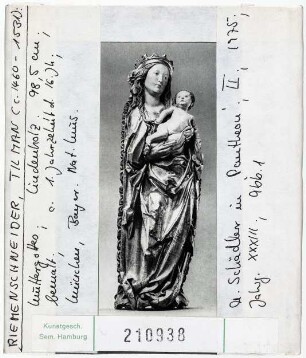 RIEMENSCHNEIDER, TILMAN (c. 1460 - 1531);
Muttergottes; Lindenholz; 98,5 cm;
bemalt; c. 1. Jahrzehnt d. 16. Jh;
München, Bayer. Nat. Mus.
A. Schädler in Pantheon, II, 1975,
Jahrg. XXXIII, 96b.1
Kunstgesch.
Sem. Hamburg
210938